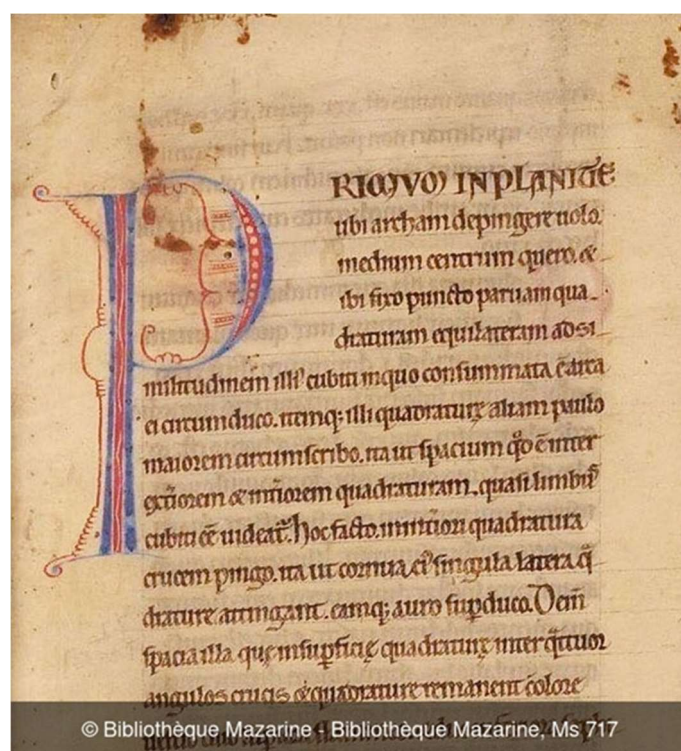 PRIMVM IN PLANICIE
ubi archam depingere uolo.
medium centrum quero. &
ibi fixo puncto paruam qua-
draturam equilateram ad si
militudinem illiꝰ cubiti in quo consummata ē arca
ei circumduco. itemq; illi quadraturę aliam paulo
maiorem circumscribo. ita ut spacium qđ ē inter
extiorem & intiorem quadraturam. quasi limbꝰ
cubiti eē uideat᷑. hoc facto. in intiori quadratura
crucem pingo. ita ut cornua eiꝰ singula latera q̄
drature attingant. eamq; auro suꝑduco. Dein̄
spacia illa. quę in suꝑficię quadraturę inter q̄ttuor
angulos crucis & quadrature remanent colore
© Bibliothèque Mazarine - Bibliothèque Mazarine, Ms 717